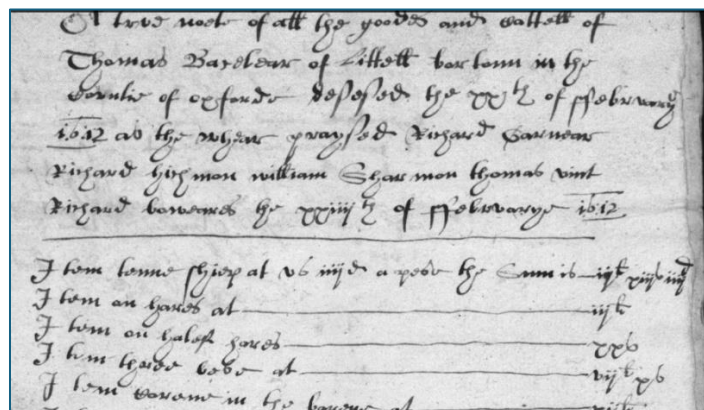 A trve noote of all the goodes and cattell of
Thomas Bacelear of Littell bortonn in the
countie of oxforde desesed the xxth of ffebrvary
1612 as the whear praysed Richard Carnear
Richard hichmon william Sharmon thomas vint
Richard boweares the xxiiijth of ffebrvarye 1612
Item tenne shiep at vs iiijd a pese the Sum is ijli xiijs iiijd
Item on hares at iijli
Item on halef hares xxs
Item thoree at vijli xs
Item corone in the barene at